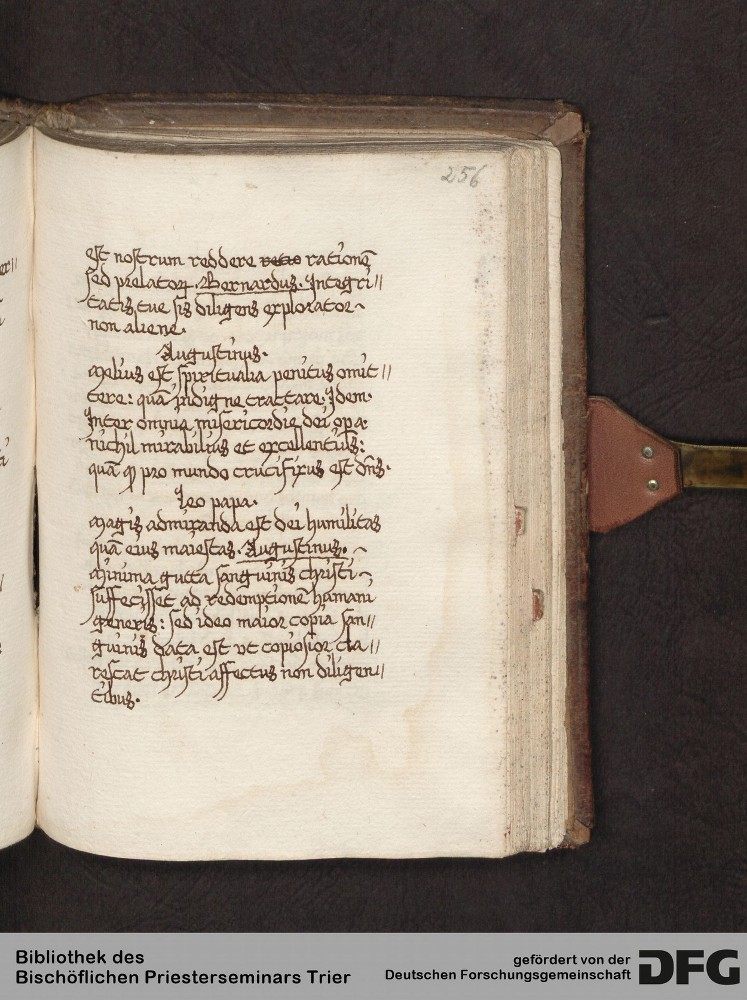 256
est nostrum reddere retro rationē
sed prelatorꝝ. Bernardus. Integri//
tatis tue sis diligens explorator
non aliene.
Augustinus.
Melius est spiritualia penitus omit//
tere: quā indigne tractare. Idem.
Inter omnia misericordie dei opa
nichil mirabilius et excellentius:
quā ꝙ pro mundo crucifixus est dn̄s.
Leo papa.
Magis admiranda est dei humilitas
quā eius maiestas. Augustinus.
Minima gutta sanguinis christi
suffecisset ad redemptionē humani
generis: sed ideo maior copia san//
guinis data est vt copiosior cla//
rescat christi affectus non diligen//
tibus.
Bibliothek des
Bischöflichen Priesterseminars Trier
gefördert von der
Deutschen Forschungsgemeinschaft
DFG